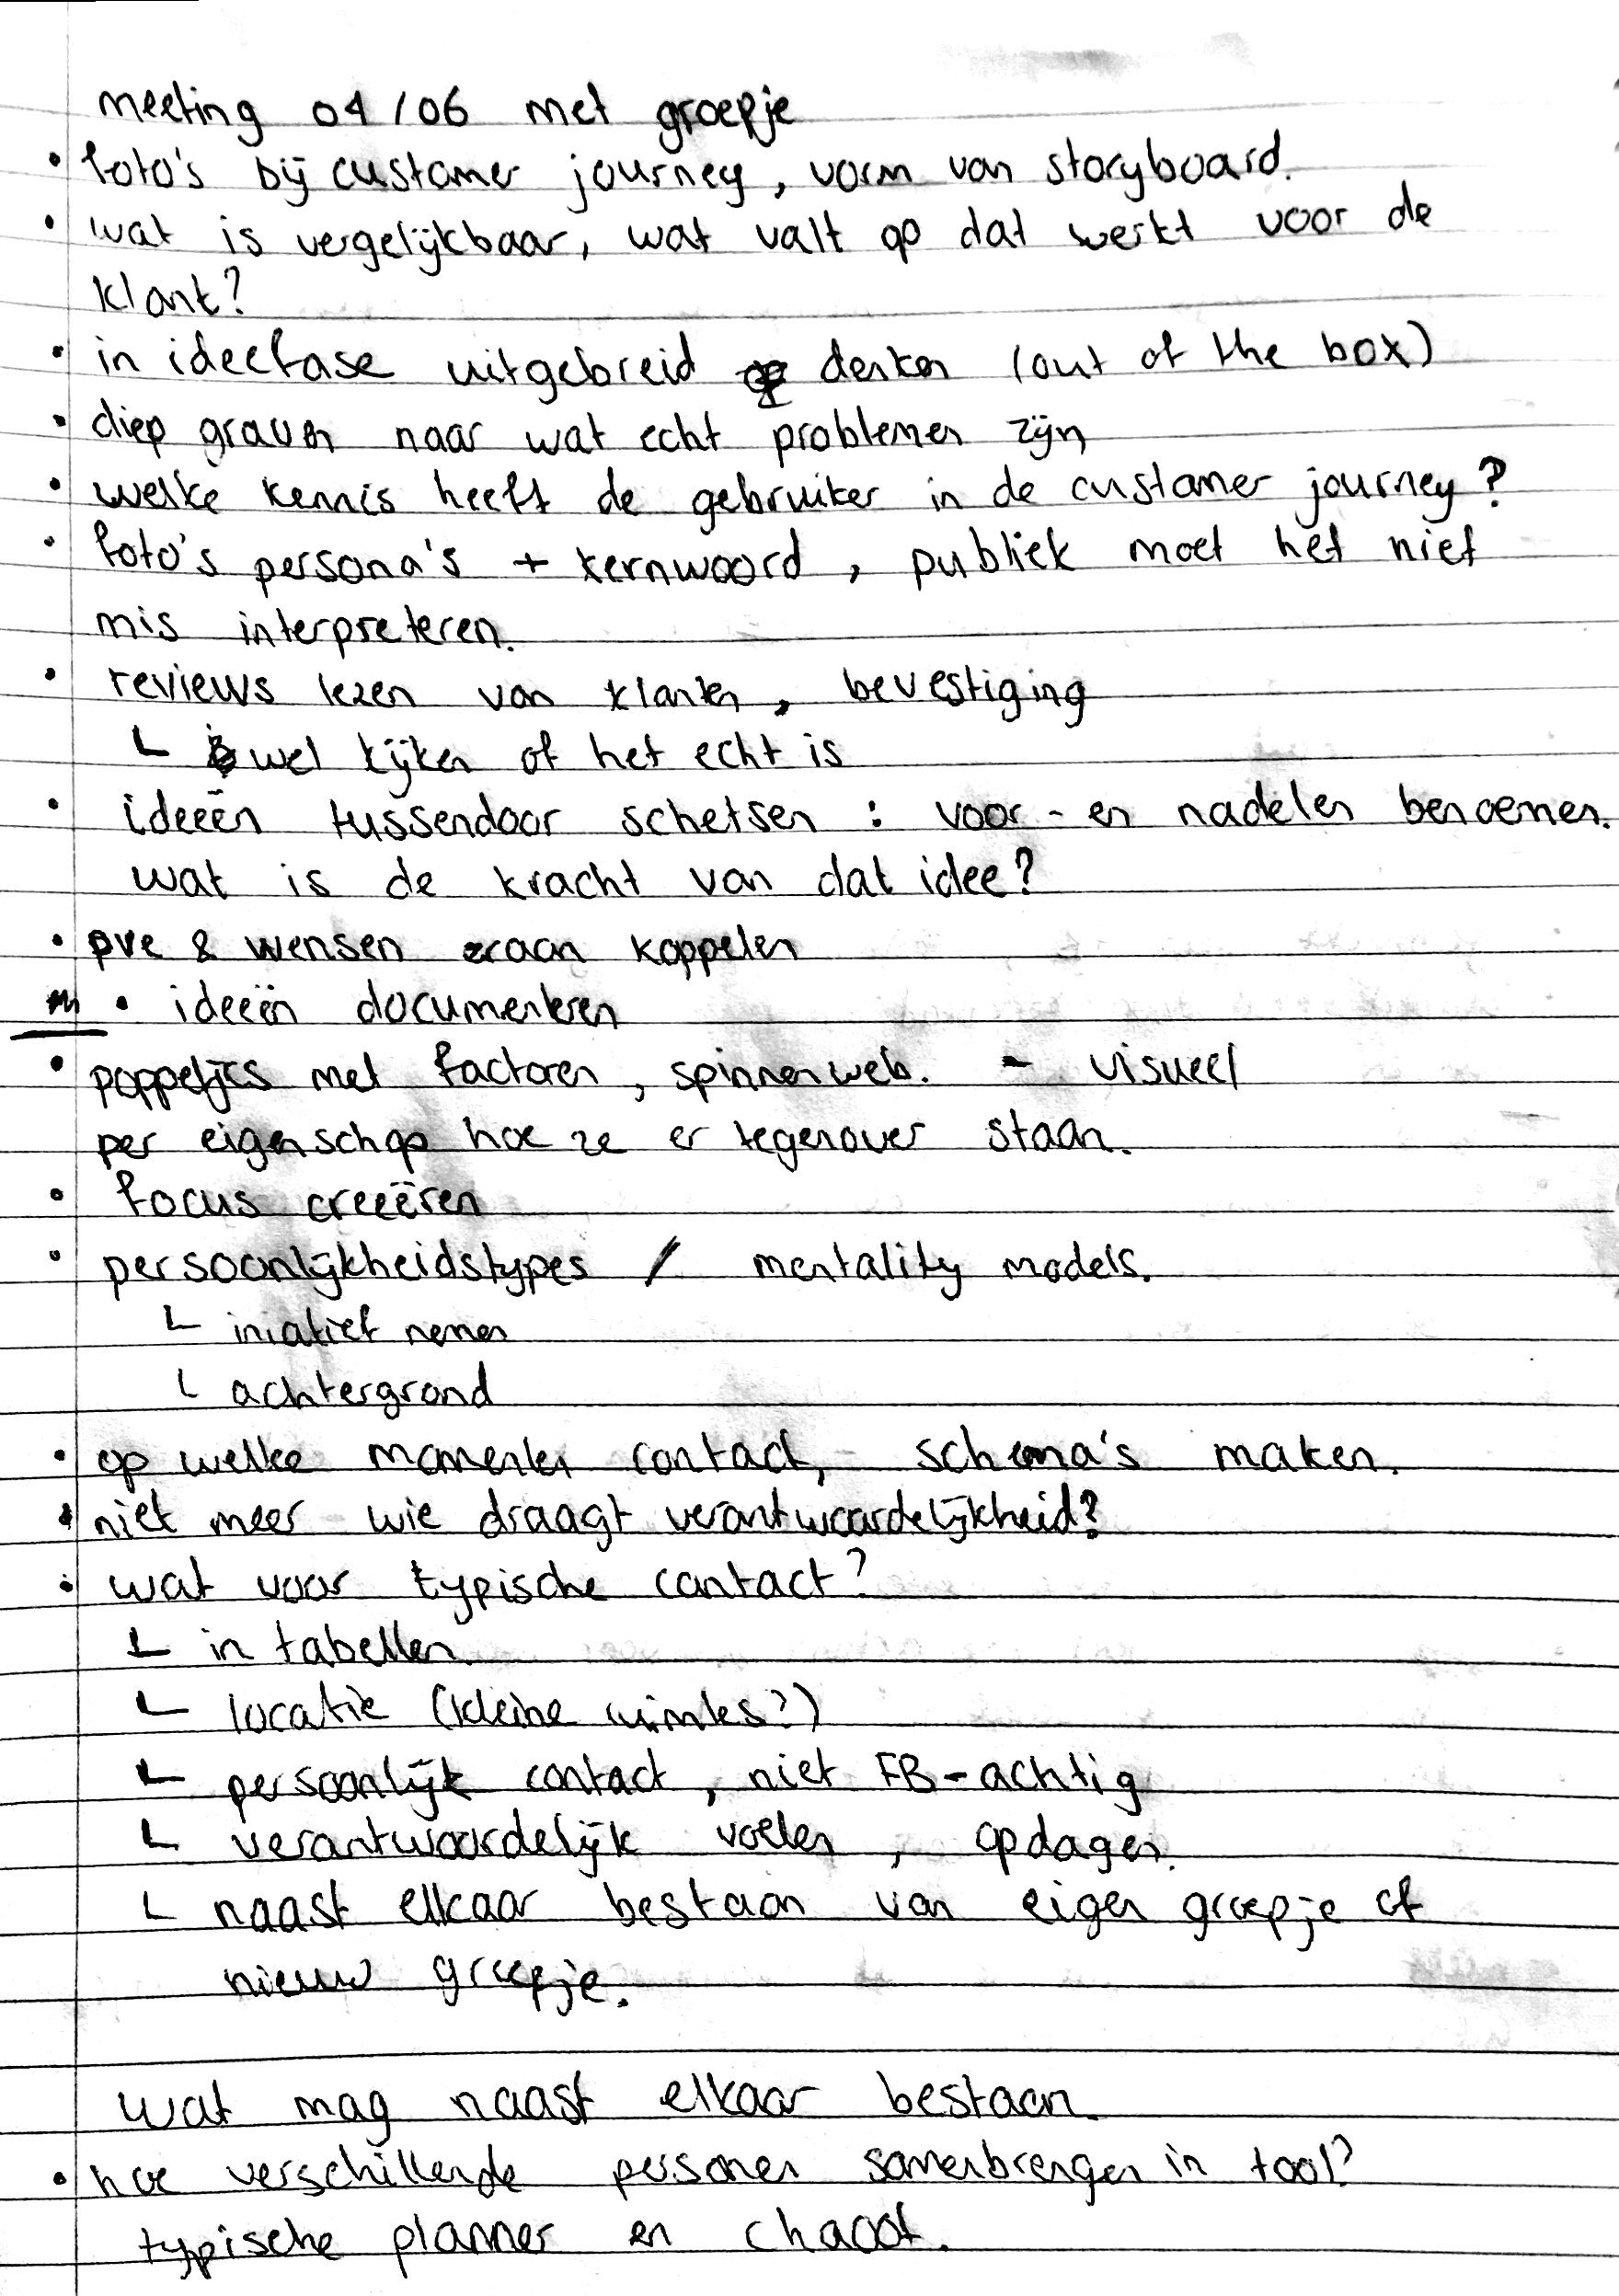 meeting 04/06 met groepje
• foto's bij customer journey, vorm van storyboard.
• wat is vergelijkbaar, wat valt op dat werkt voor de
klant?
• in ideefase uitgebreid denken (out of the box)
• diep graven naar wat echt problemen zijn
• welke kennis heeft de gebruiker in de customer journey?
• foto's persona's + kernwoord, publiek moet het niet
mis interpreteren.
• reviews lezen van klanten, bevestiging
└ wel kijken of het echt is
• ideeën tussendoor schetsen: voor- en nadelen benoemen.
wat is de kracht van dat idee?
• pve & wensen eraan koppelen
• ideeën documenteren
• poppetjes met factoren, spinnenweb. - visueel
per eigenschap hoe ze er tegenover staan.
• focus creeëren
• persoonlijkheidstypes / mentality models.
└ iniatief nemen
└ achtergrond
• op welke momenten contact, schema's maken.
• niet meer wie draagt verantwoordelijkheid?
• wat voor typische contact?
└ in tabellen.
└ locatie (kleine ?)
└ persoonlijk contact, niet FB-achtig
└ verantwoordelijk voelen, opdagen.
└ naast elkaar bestaan van eigen groepje of
nieuw groepje.
wat mag naast elkaar bestaan.
• hoe verschillende personen samenbrengen in tool?
typische planner en chaoot.